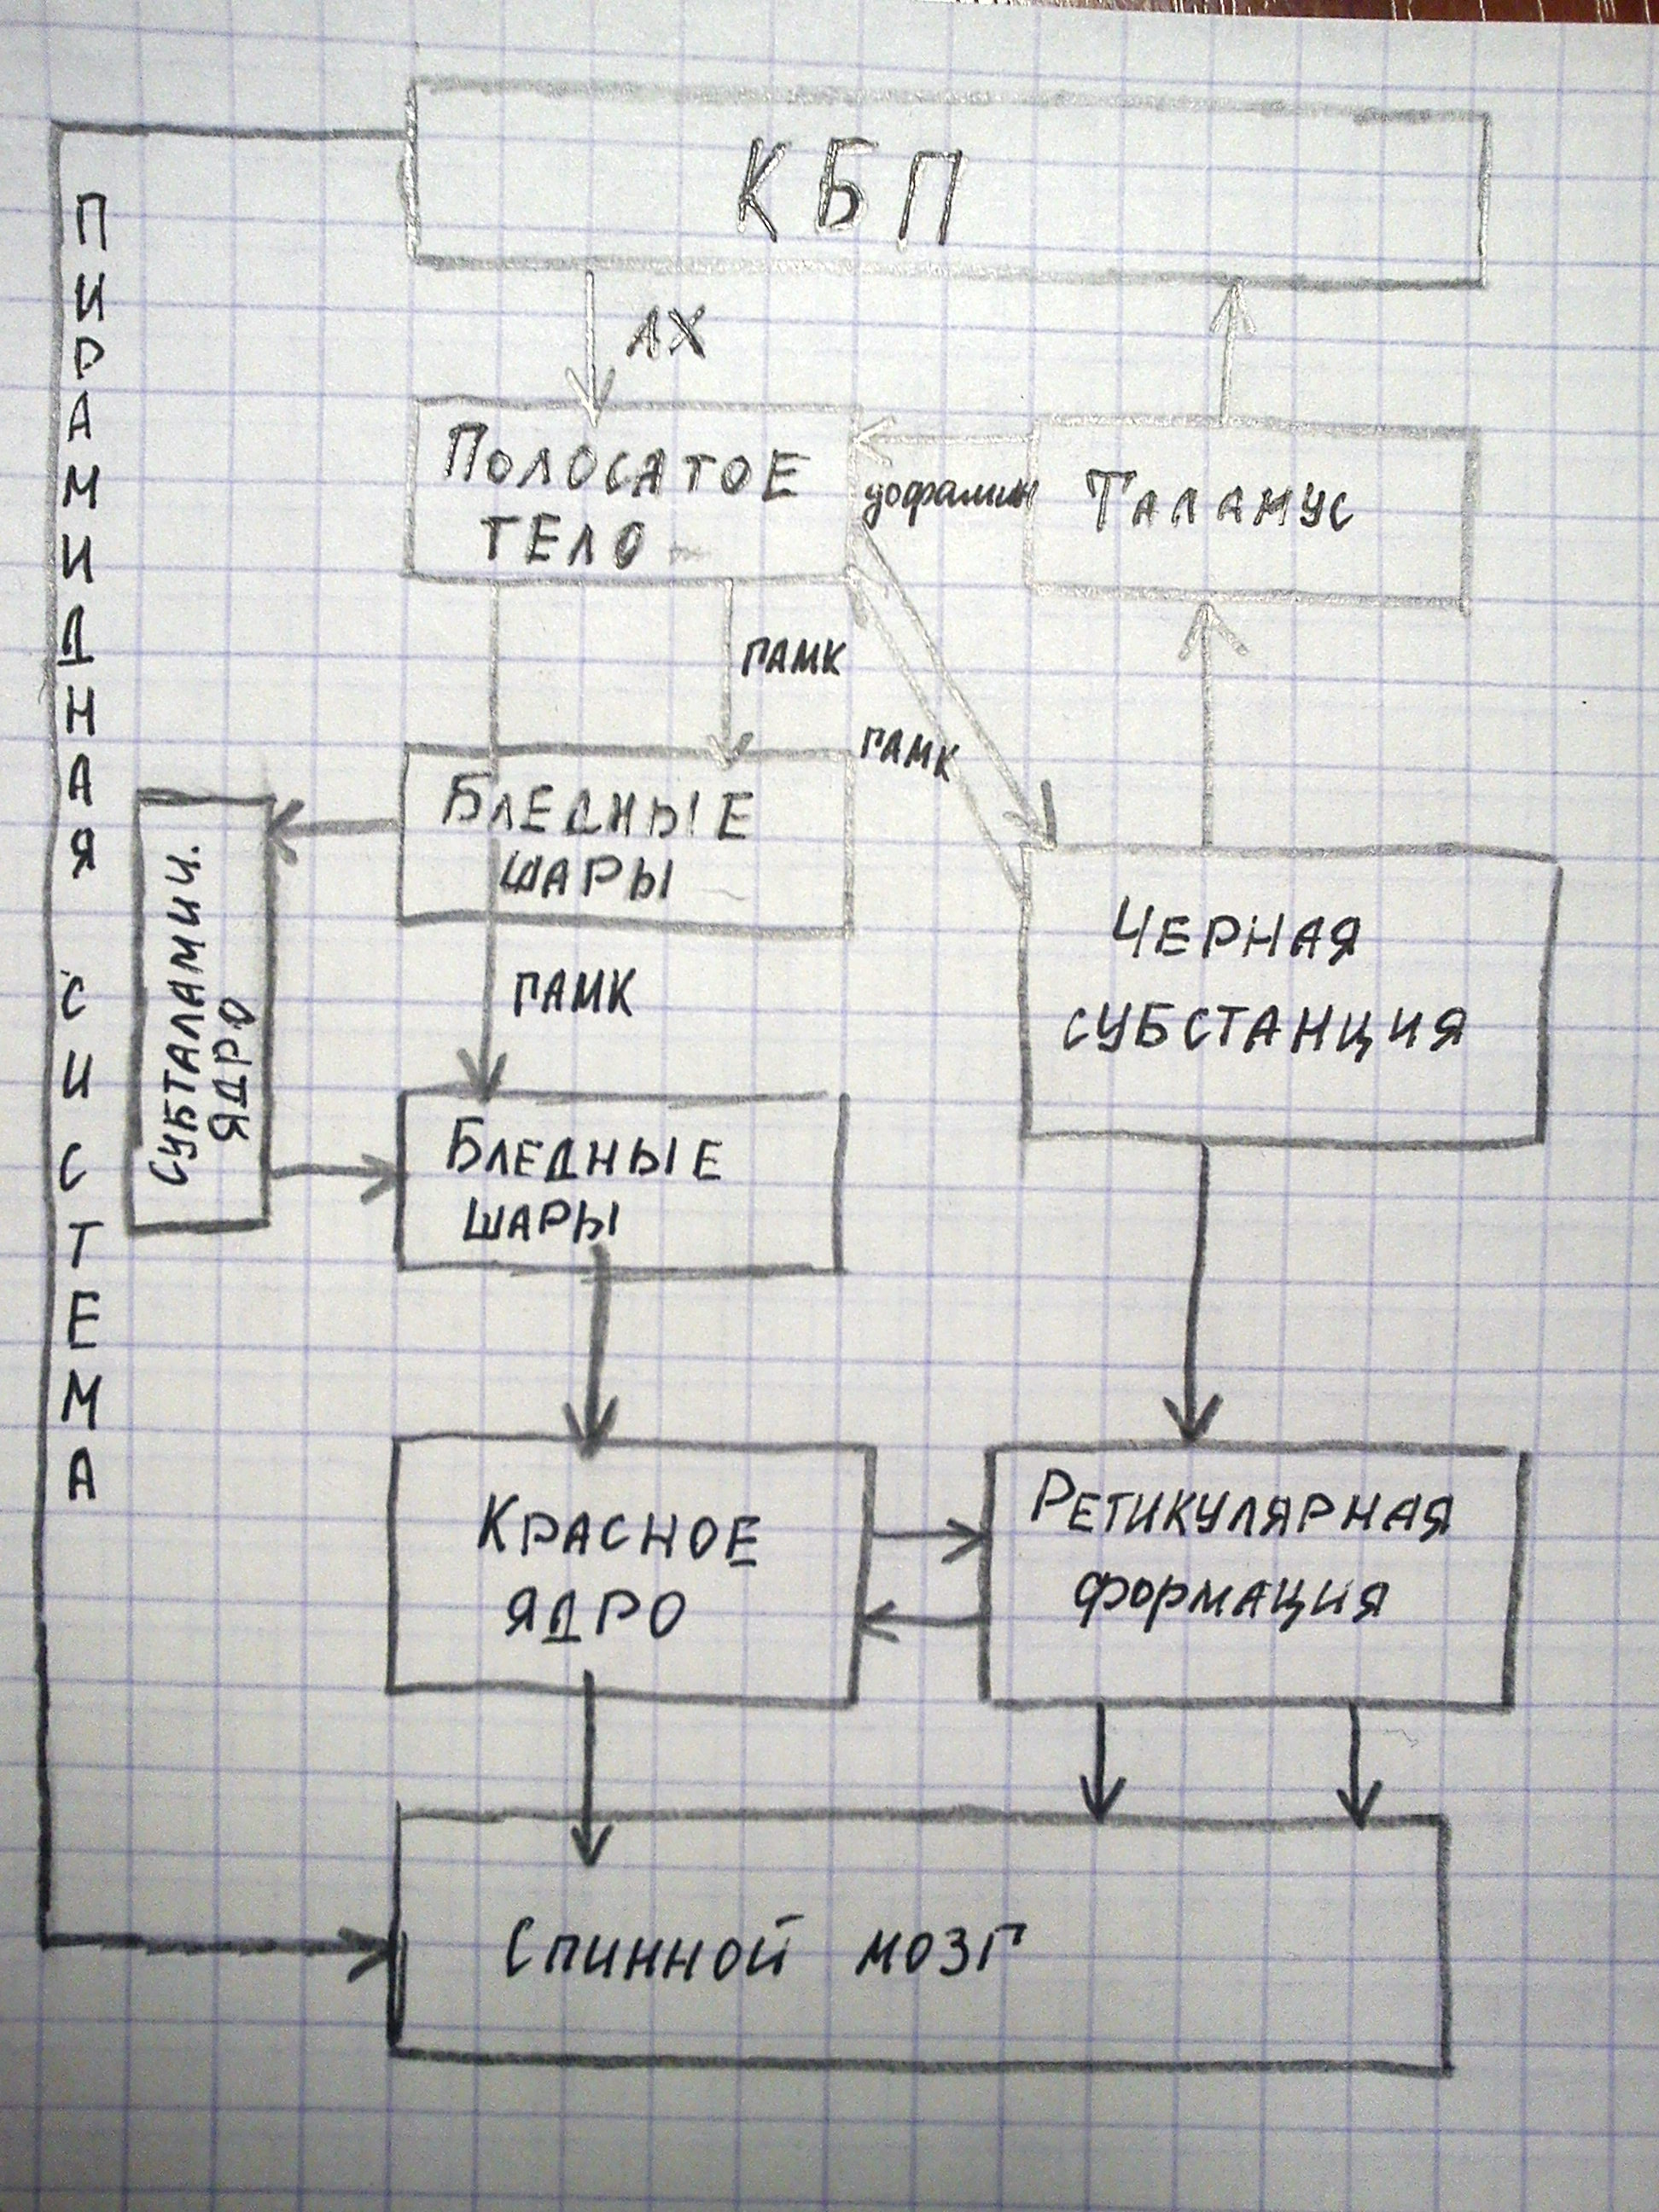 КБП
ПИРАМИДНАЯ СИСТЕМА
АХ
ПОЛОСАТОЕ
ТЕЛО
дофамин
ТАЛАМУС
ГАМК
ГАМК
БЛЕДНЫЕ
ШАРЫ
СУБТАЛАМИЧ.
ЯДРО
ЧЕРНАЯ
СУБСТАНЦИЯ
ГАМК
БЛЕДНЫЕ
ШАРЫ
КРАСНОЕ
ЯДРО
РЕТИКУЛЯРНАЯ
ФОРМАЦИЯ
СПИННОЙ МОЗГ